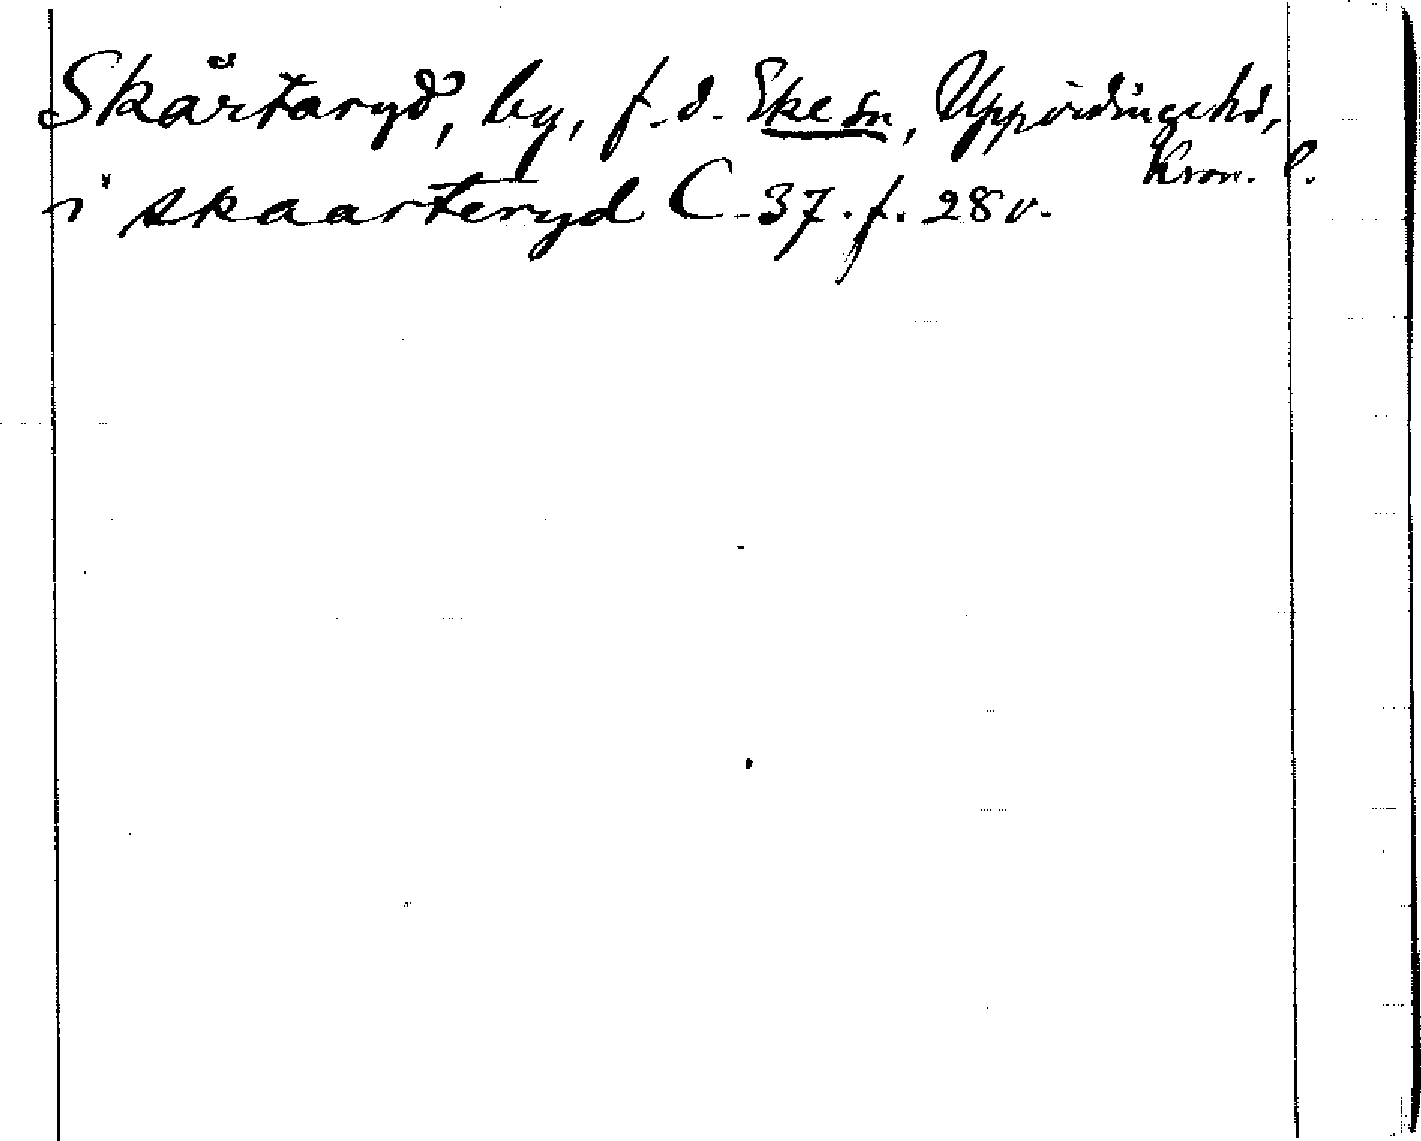 Skärtaryd, by, f. d. Eke sn, Uppvidinge hd,
Kron. l.
i skaarteryd C 37. f. 28 v.